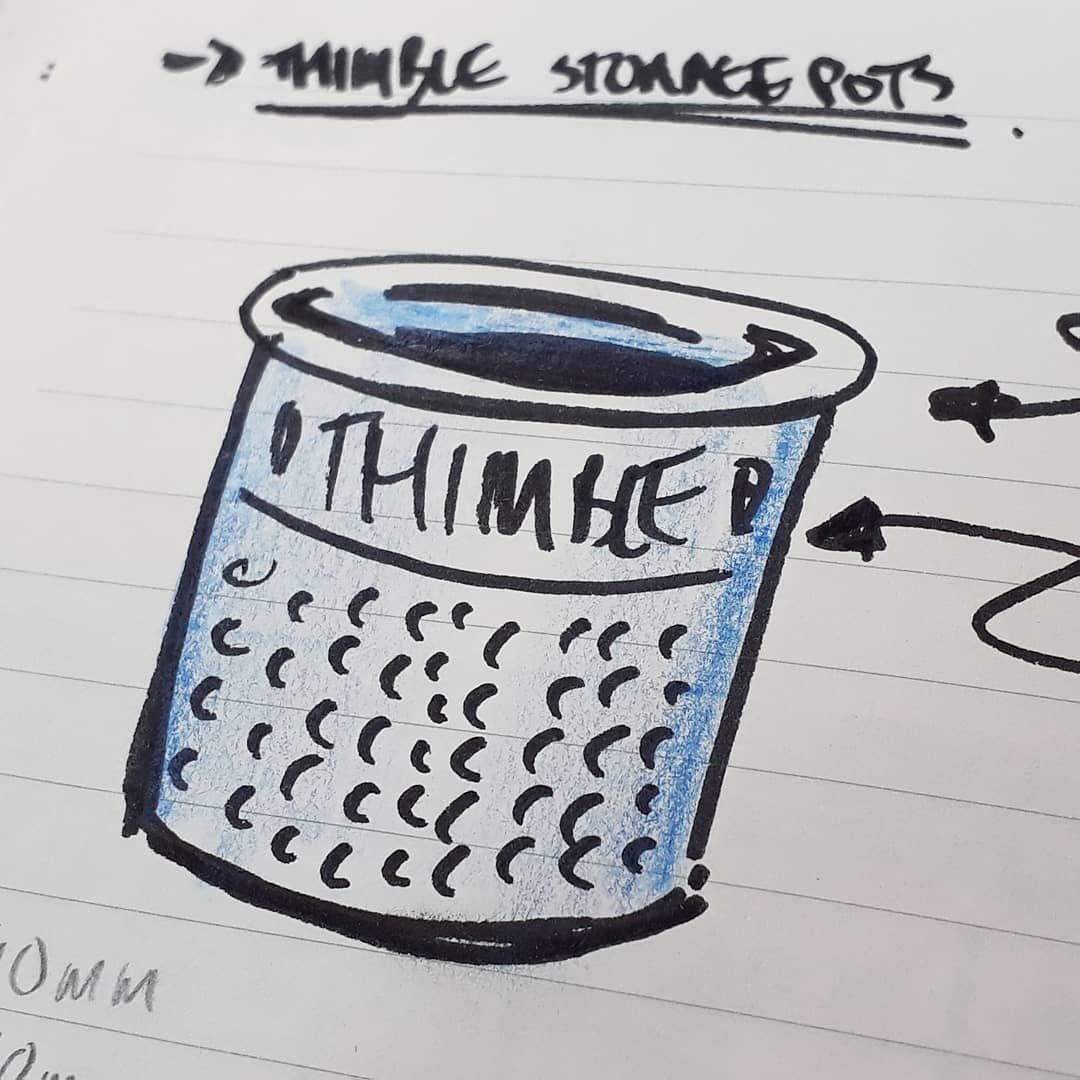 → THIMBLE STORAGE POTS
THIMBLE
0MM